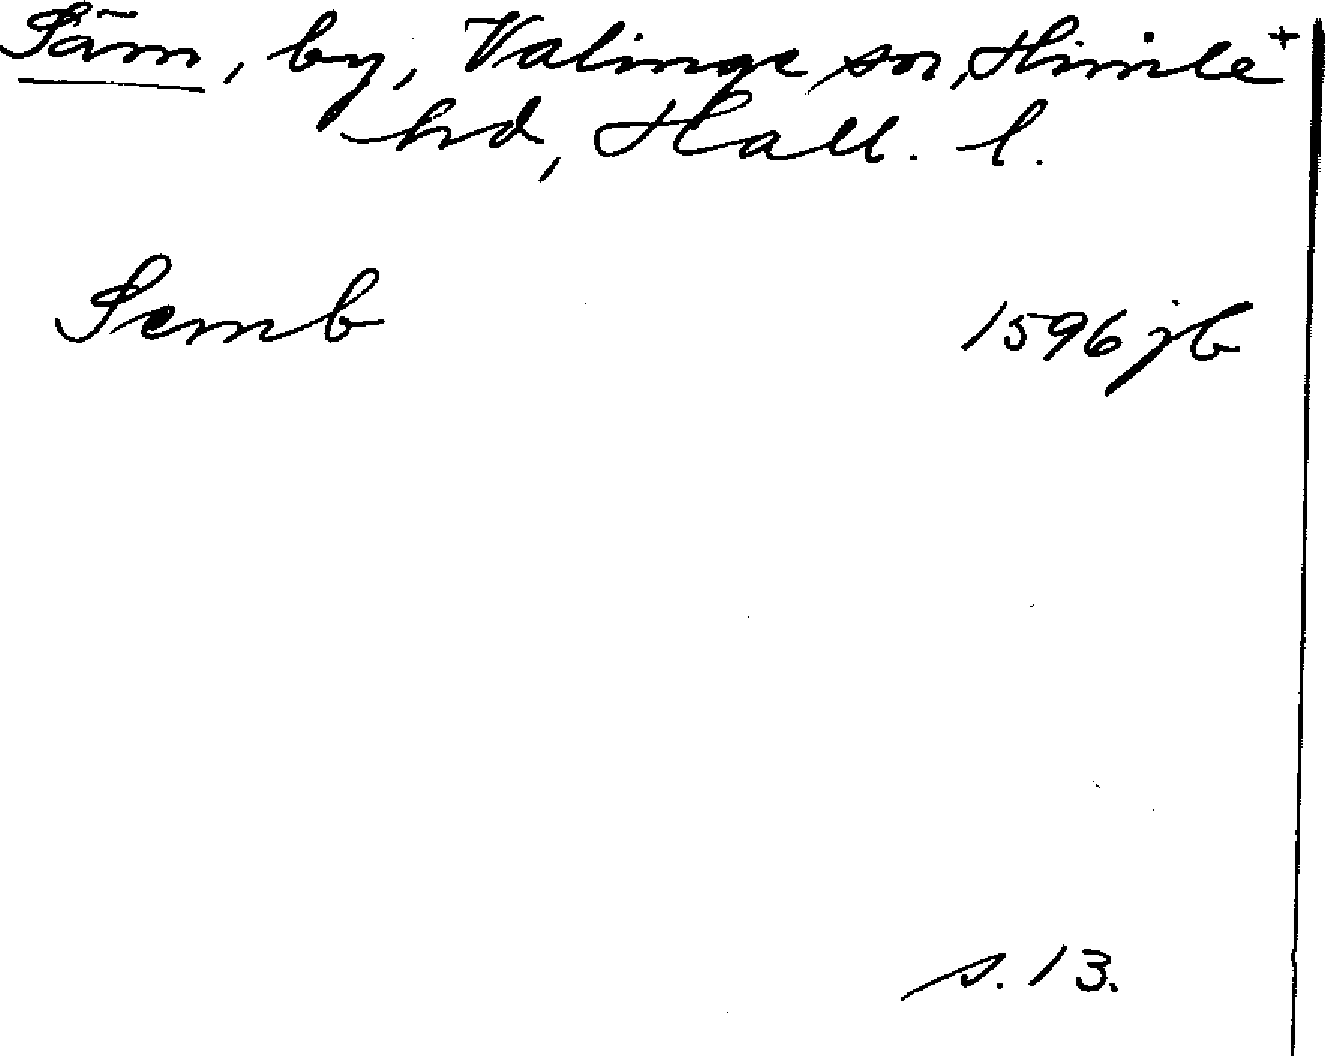 Säm, by, Valinge sn, Himle +
hd, Hall. l.
Semb 1596 jb
s. 13.